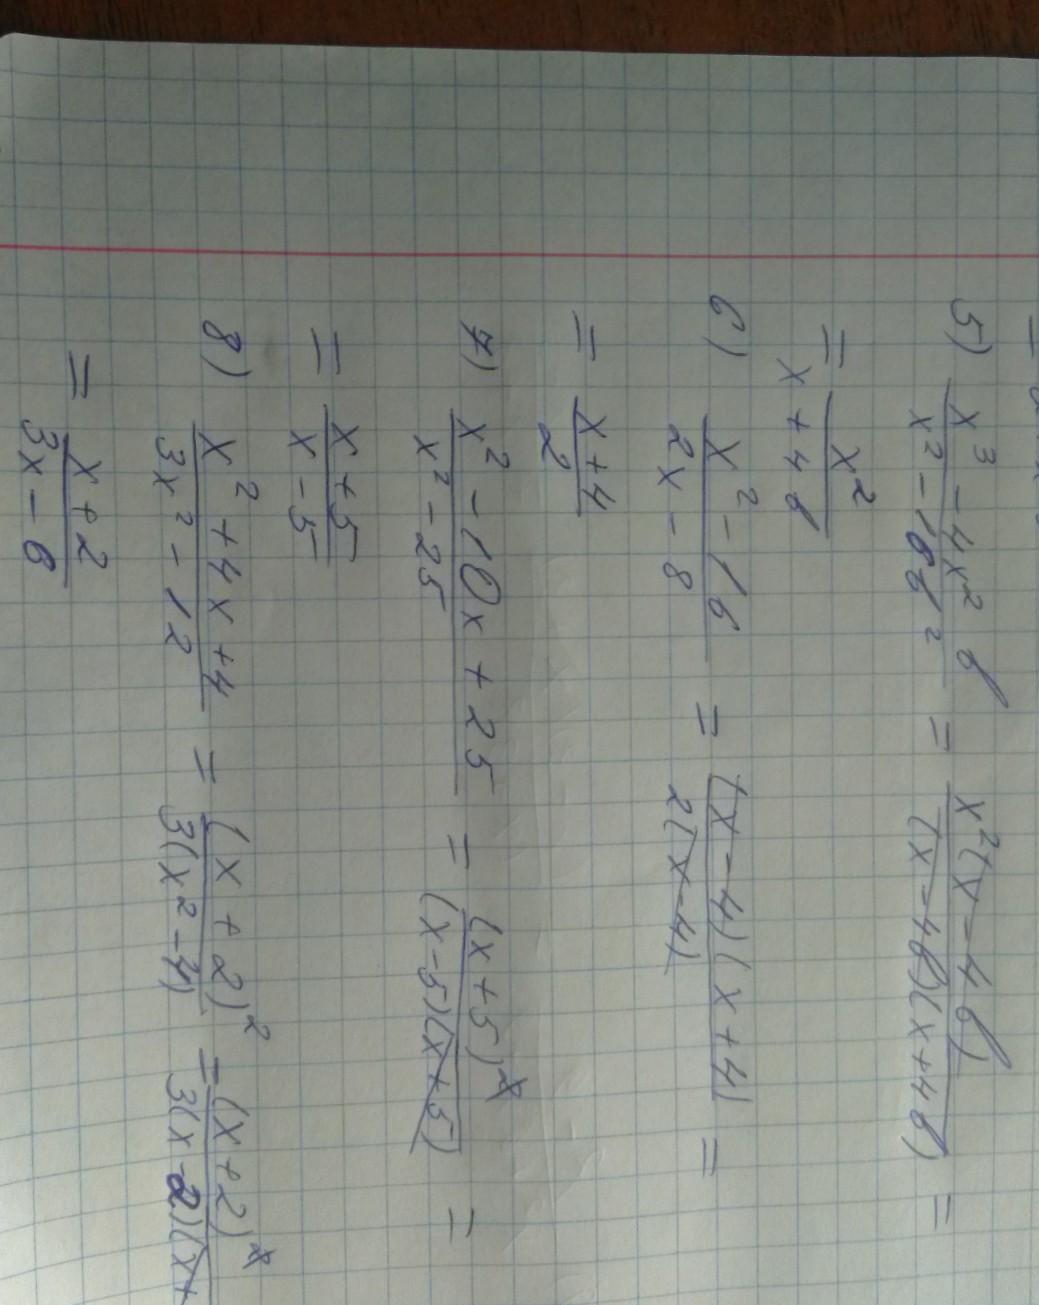 5) (x³ - 4x² b)/(x² - 16b²) = (x²(x - 4b))/((x - 4b)(x + 4b)) =
= x²/(x + 4b)
6) (x² - 16)/(2x - 8) = ((x - 4)(x + 4))/(2(x - 4)) =
= (x + 4)/2
7) (x² - 10x + 25)/(x² - 25) = (x + 5)²/((x - 5)(x + 5)) =
= (x + 5)/(x - 5)
8) (x² + 4x + 4)/(3x² - 12) = (x + 2)²/(3(x² - 4)) = (x + 2)²/(3(x - 2)(x +
= (x + 2)/(3x - 6)